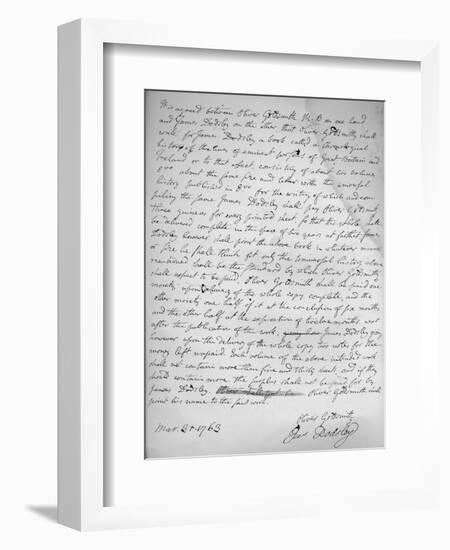 It is agreed between Oliver Goldsmith M:B on one hand
and James Dodsley on the other that Oliver Goldsmith shall
write for James Dodsley a book called a Chronological
history of the lives of eminent persons of Great Britain and
Ireland or to that effect, consisting of about two volumes
8vo about the same size and letter with the universal
history published in 8vo for the writing of which and com
piling the same James Dodsley shall pay Oliver Goldsmith
three guineas for every printed sheet, so that the whole shall
be delivered complete in the space of two years at farthest James
Dodsley however shall print the above book in whatever manner
or size he shall think fit only the universal history above
mentioned shall be the standard by which Oliver Goldsmith
shall expect to be paid. Oliver Goldsmith shall be paid one
moiety upon delivery of the whole copy complete, and the
other moiety one half of it at the conclusion of six months
and the other half at the expiration of twelve months next
after the publication of the work. James Dodsley giving
however upon the delivery of the whole copy two notes for the
money left unpaid. Each volume of the above intended work
shall not contain more than five and thirty sheets and if they
should contain more the surplus shall not be paid for by
James Dodsley. Oliver Goldsmith shall
print his name to the said work.
Oliver Goldsmith
Mar. 31. 1763 Jas Dodsley